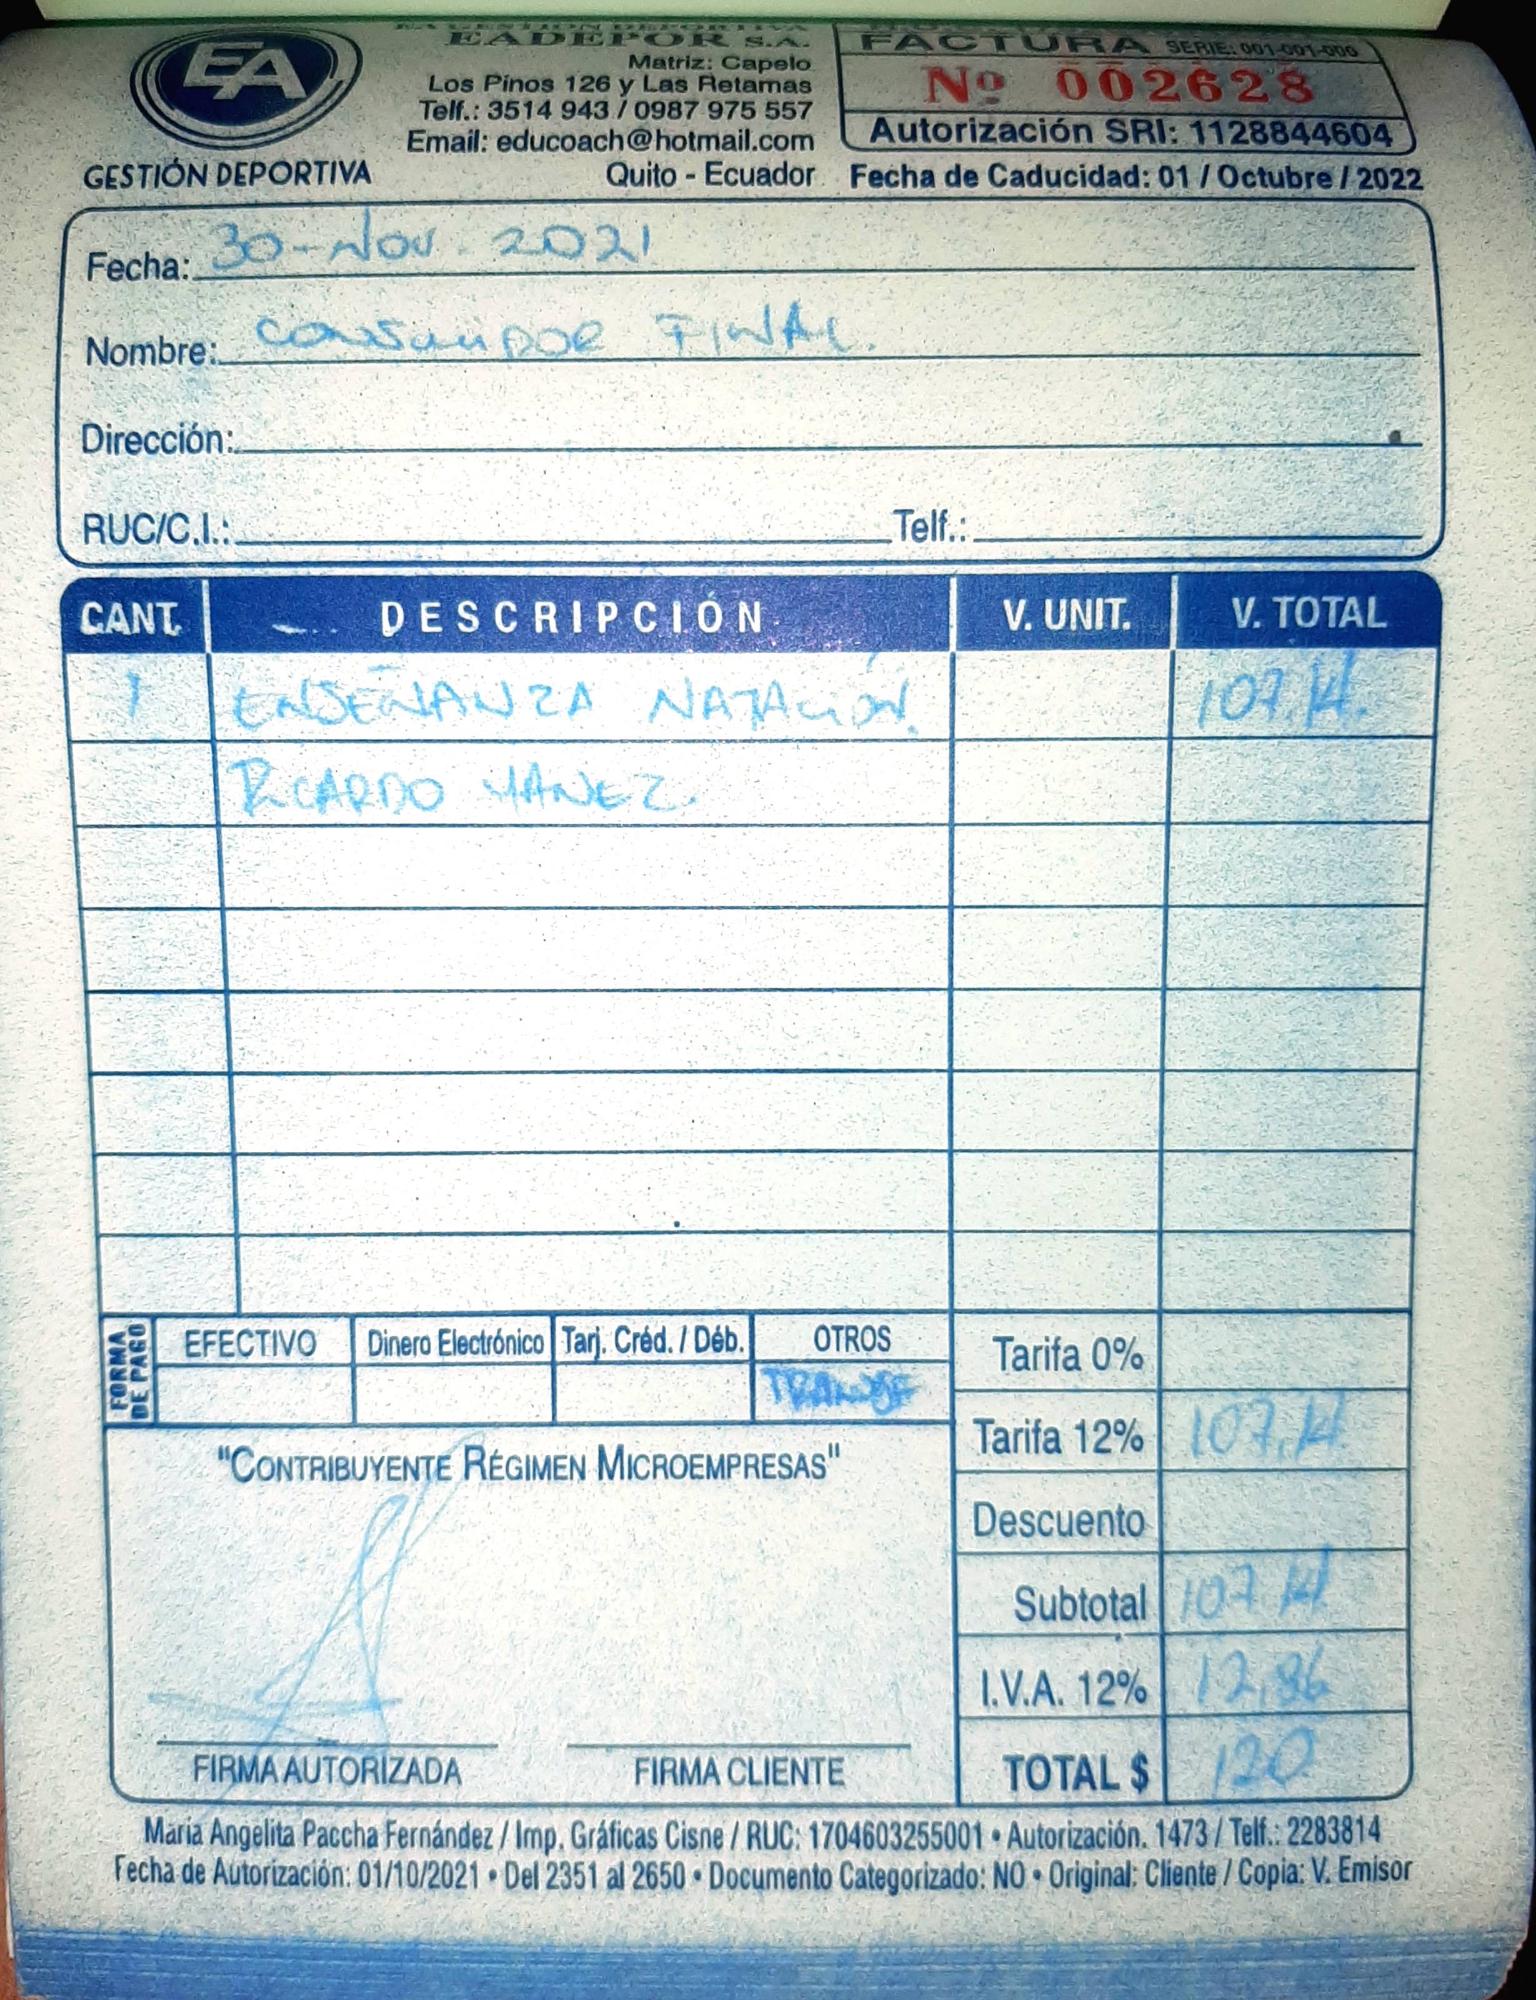 EA GESTIÓN DEPORTIVA
EADEPOR S.A.
Matriz: Capelo
Los Pinos 126 y Las Retamas
Telf.: 3514 943 / 0987 975 557
Email: educoach@hotmail.com
Quito - Ecuador
EA
GESTIÓN DEPORTIVA
FACTURA SERIE: 001-001-000
Nº 002628
Autorización SRI: 1128844604
Fecha de Caducidad: 01 / Octubre / 2022
Fecha: 30-Nov. 2021
Nombre: CONSUMIDOR FINAL.
Dirección:
RUC/C.I.: Telf.:
CANT. DESCRIPCIÓN V. UNIT. V. TOTAL
1 ENSEÑANZA NATACIÓN. 107.14.
RICARDO YANEZ.
FORMA DE PAGO
EFECTIVO Dinero Electrónico Tarj. Créd. / Déb. OTROS
TRANSF
Tarifa 0%
Tarifa 12% 107.14
Descuento
Subtotal 107.14
I.V.A. 12% 12,86
TOTAL $ 120
"CONTRIBUYENTE RÉGIMEN MICROEMPRESAS"
FIRMA AUTORIZADA FIRMA CLIENTE
María Angelita Paccha Fernández / Imp. Gráficas Cisne / RUC: 1704603255001 • Autorización. 1473 / Telf.: 2283814
Fecha de Autorización: 01/10/2021 • Del 2351 al 2650 • Documento Categorizado: NO • Original: Cliente / Copia: V. Emisor